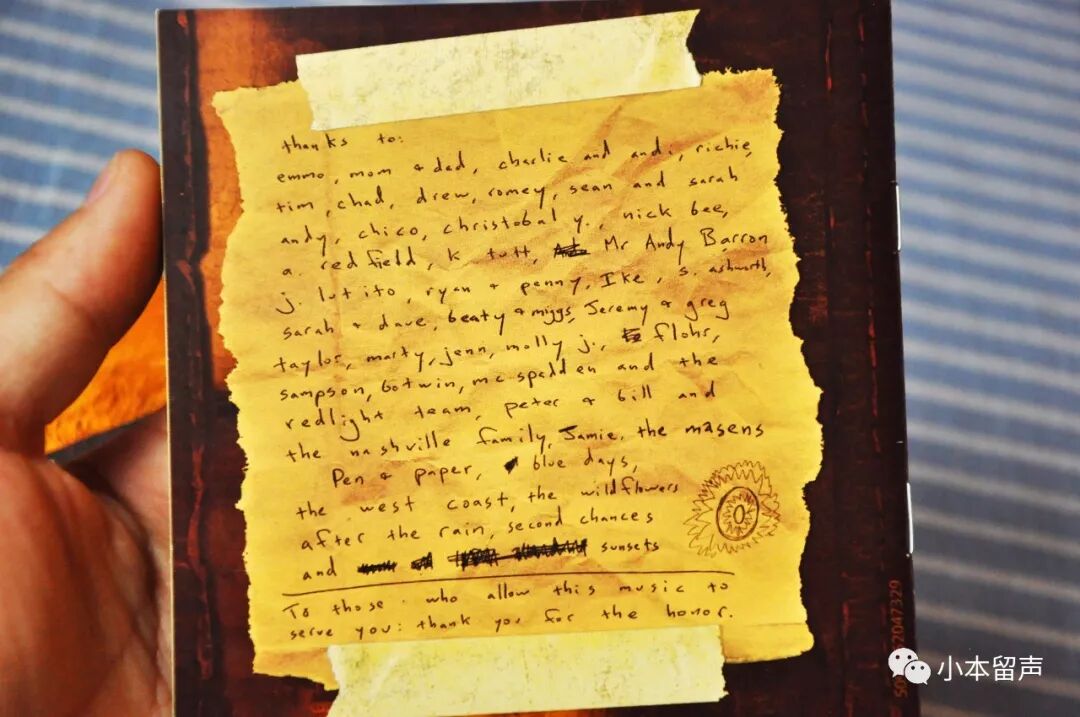 thanks to:
emmo, mom & dad, charlie and andi, richie,
tim, chad, drew, romey, sean and sarah
andy, chico, christobal y., nick bee,
a. redfield, k tutt, Mr Andy Barron
j. lutito, ryan & penny, Ike, s. ashworth,
sarah & dave, beaty & miggs, Jeremy & greg
taylor, marty, jenn, molly j., flohr,
sampson, botwin, mcspadden and the
redlight team, peter & bill and
the nashville family, Jamie, the masens
Pen & paper, blue days,
the west coast, the wildflowers
after the rain, second chances
and sunsets
To those who allow this music to
serve you: thank you for the honor.
2047329
小本留声